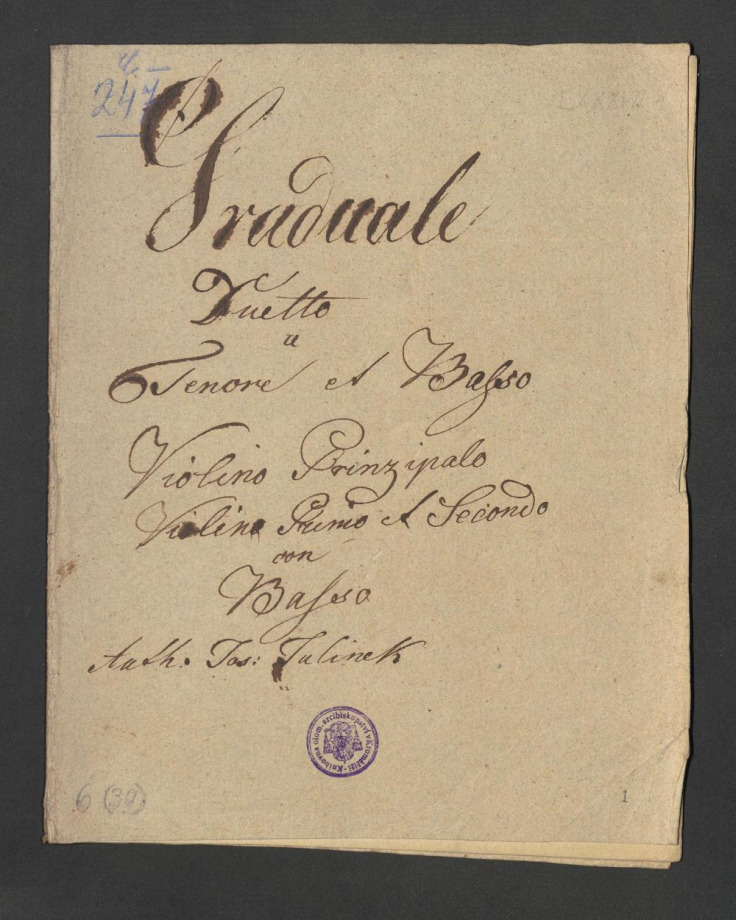 247
Graduale
Duetto
a
Tenore et Basso
Violino Prinzipalo
Violino Primo et Secondo
con
Basso
Auth. Jos: Julinek
Knihovna olom. arcibiskupství v Kroměříži
6 (39)
1